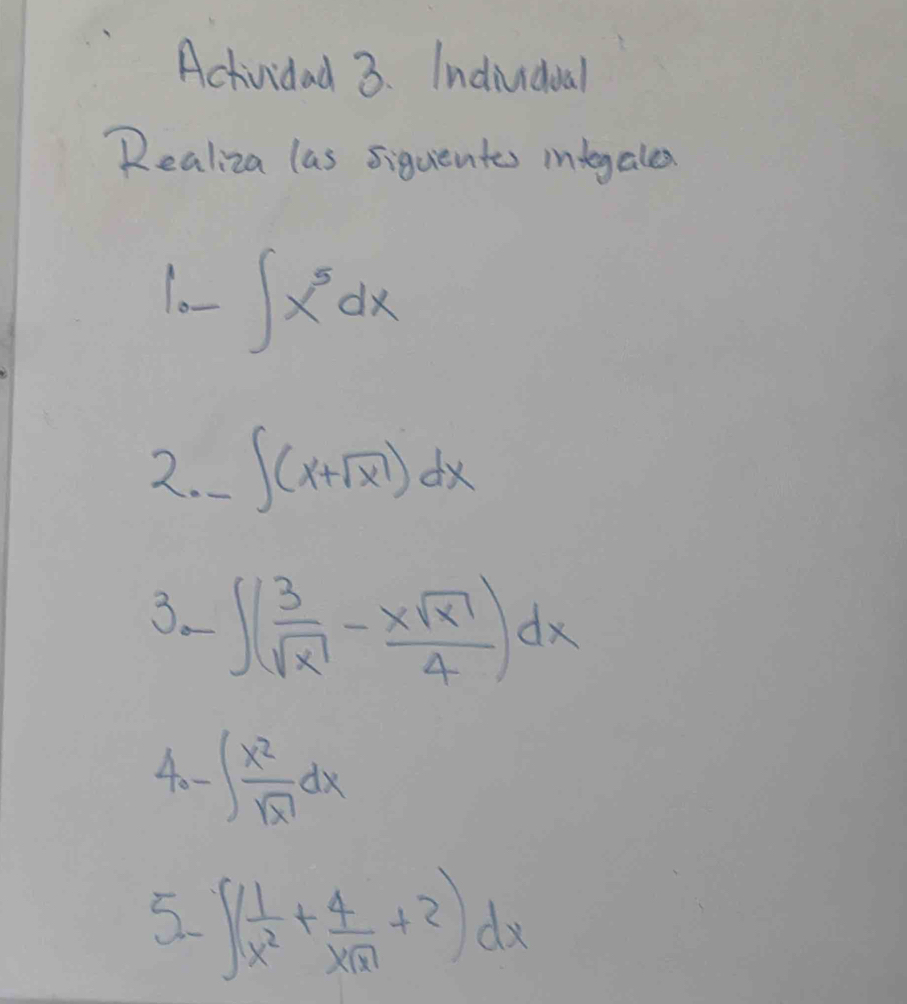 Actividad 3. Individual
Realiza las siguientes integales
1.- ∫x⁵dx
2.- ∫(x+√x)dx
3.- ∫(3/√x - x√x/4)dx
4.- ∫x²/√x dx
5.- ∫(1/x² + 4/x√x + 2)dx